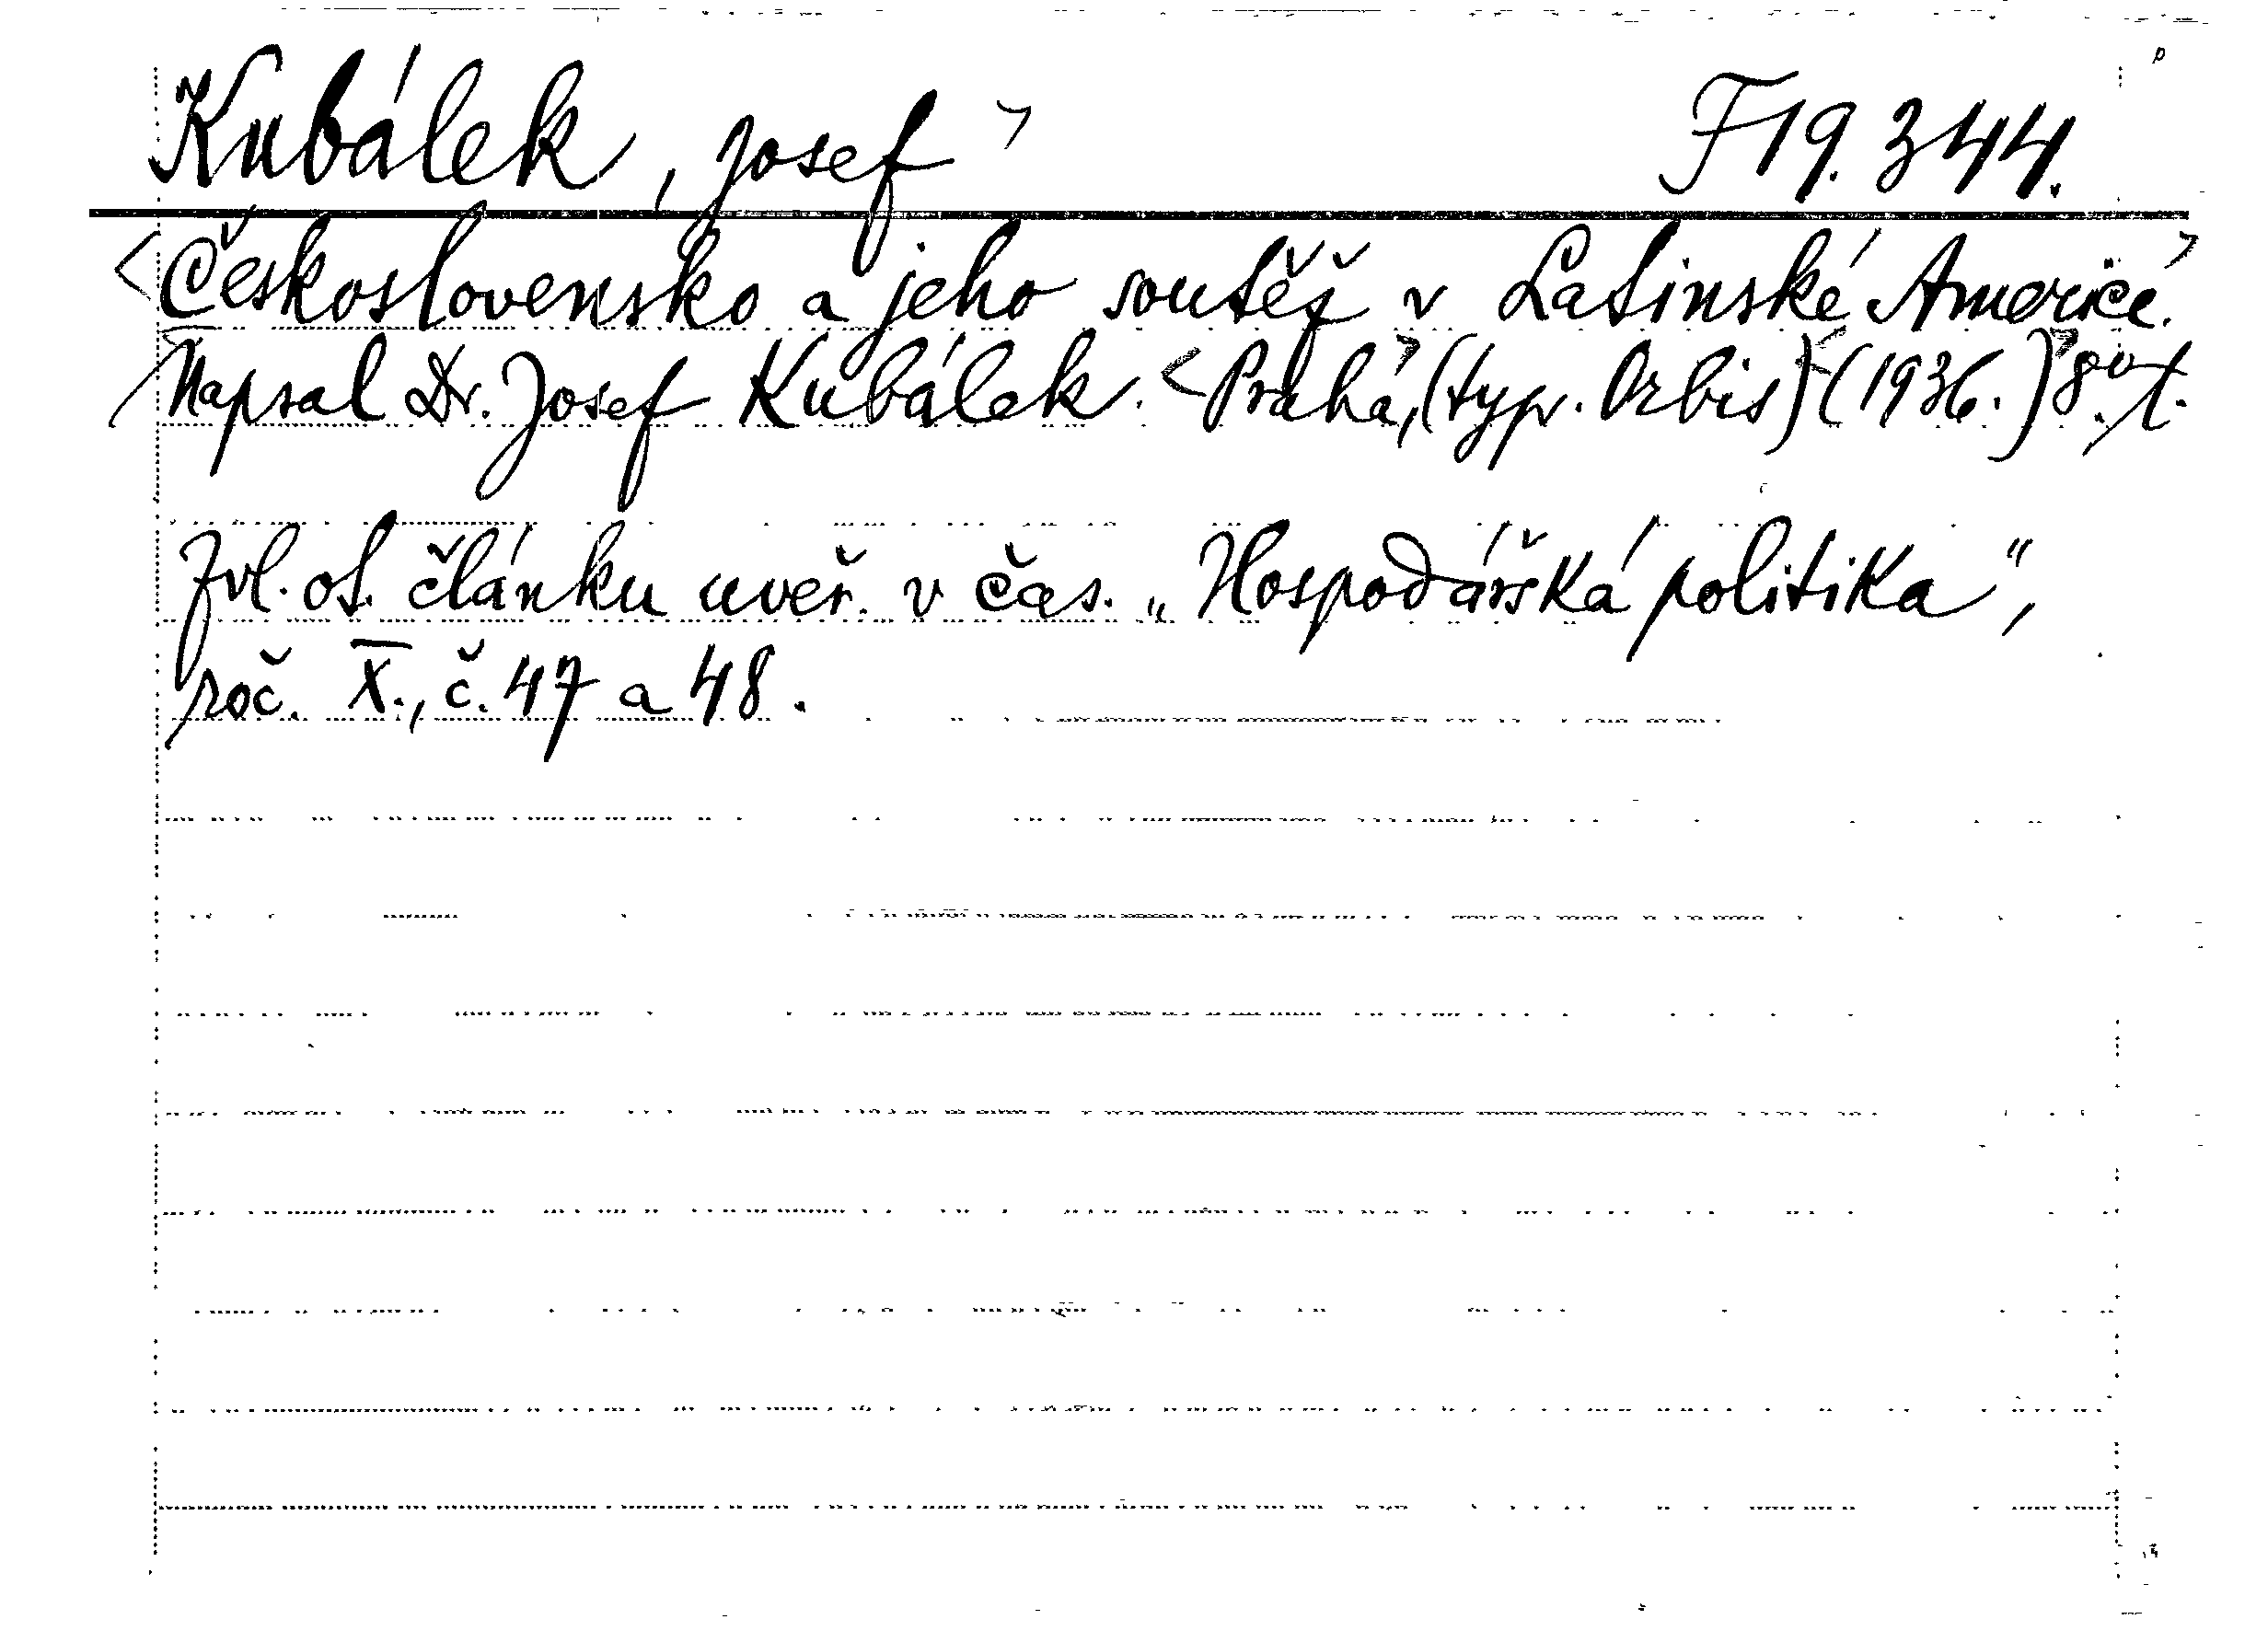 Kubálek, Josef>
F19.344.
<Československo a jeho soutěž v Latinské Americe.>
Napsal Dr. Josef Kubálek. <Praha>, (typ. Orbis) <(1936.)> 8°.
Zvl. ot. článku uveř. v čas. „Hospodářská politika“,
roč. X., č. 47 a 48.